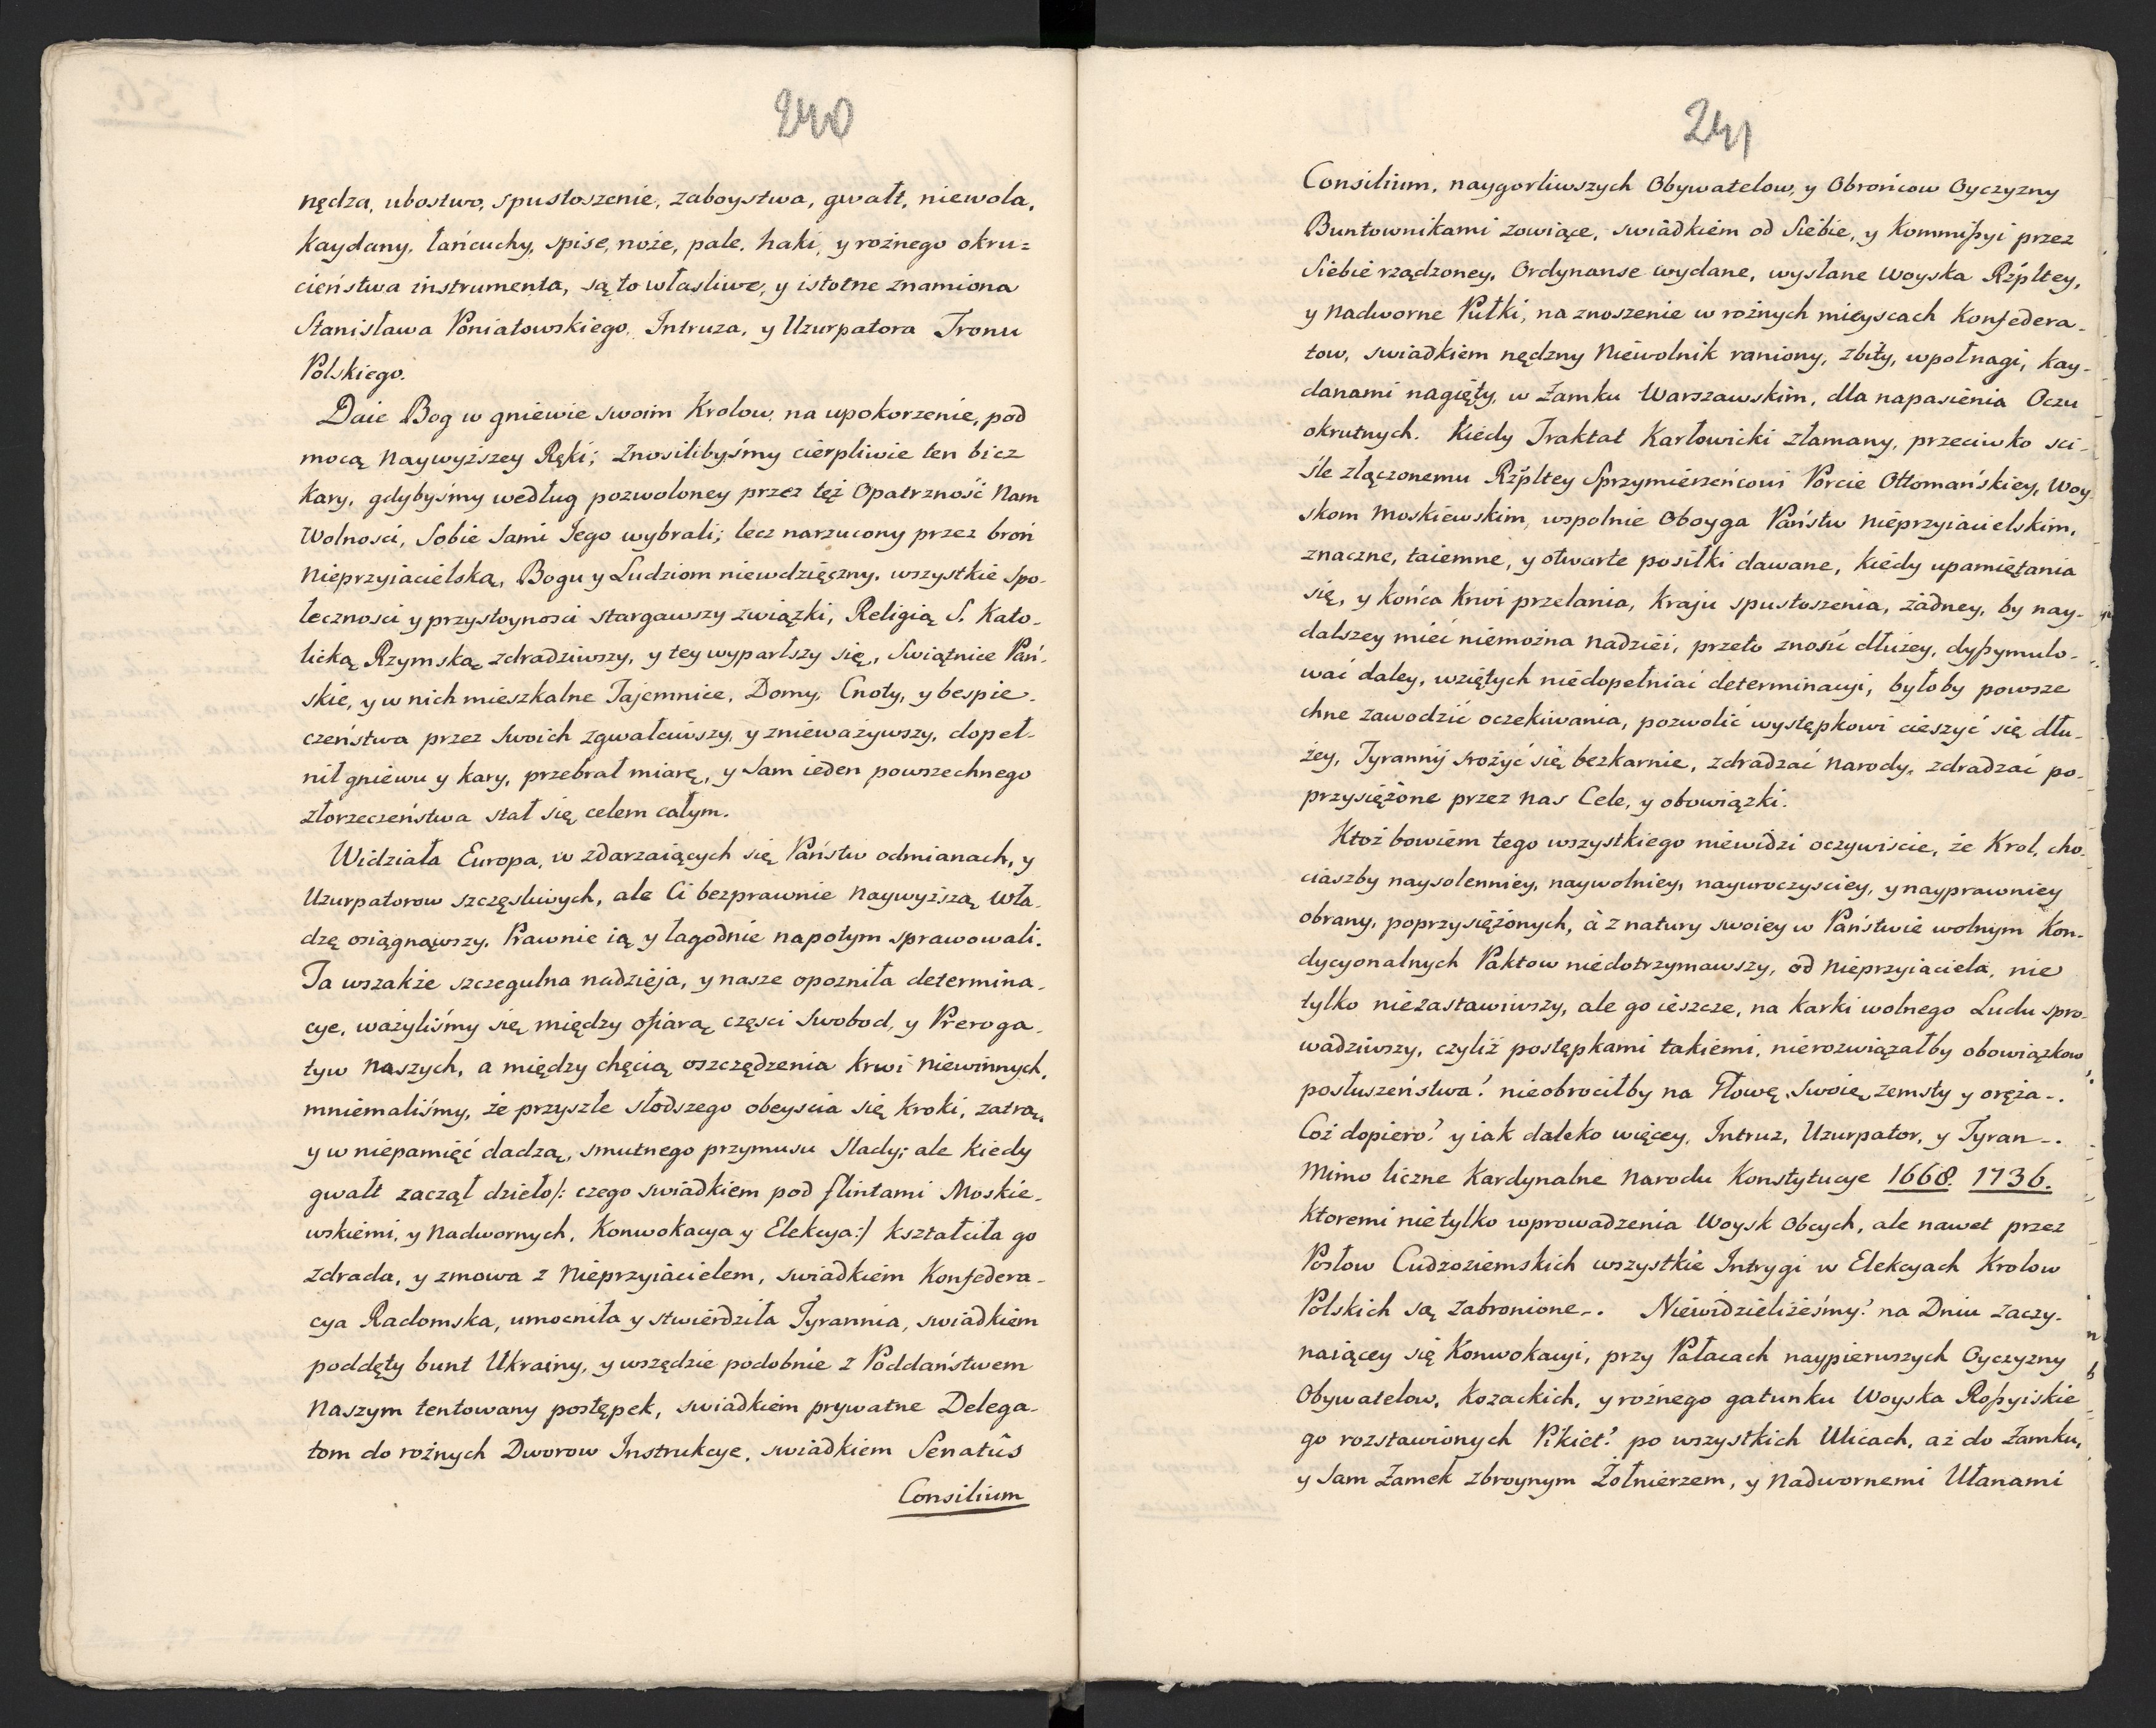 240
nędza, ubostwo, spustoszenie, zaboystwa, gwałt, niewola,
Kaydany, łańcuchy, spise, noże, pale, haki, y rożnego okru=
cieństwa instrumenta, są to własliwe, y istotne znamiona
Stanisława Poniatowskiego, Intruza, y Uzurpatora Tronu
Polskiego.
Daie Bog w gniewie swoim Krolow, na upokorzenie, pod
mocą Naywyższey Ręki; Znosilibyśmy cierpliwie ten bicz
Kary, gdybyśmy według pozwoloney przez tęż Opatrzność Nam
Wolnosci, Sobie Sami Jego wybrali; lecz narzucony przez broń
Nieprzyiacielską, Bogu y Ludziom niewdzięczny, wszystkie spo-
łecznosci y przystoynosci stargawszy związki, Religią S. Kato-
licką Rzymską zdradziwszy, y tey wyparłszy się, Swiątnice Pań-
skie, y w nich mieszkalne Tajemnice, Domy, Cnoty, y bespie-
czeństwa przez Swoich zgwałciwszy, y znieważywszy, dopeł-
nił gniewu y kary, przebrał miarę, y Sam ieden powszechnego
złorzeczeństwa stał się celem całym.
Widziała Europa, w zdarzaiących się Państw odmianach, y
Uzurpatorow szczęsliwych, ale Ci bezprawnie Naywyższą Wła-
dzę osiągnąwszy, Prawnie ią y łagodnie napotym sprawowali.
Ta wszakże szczegulna nadzieja, y nasze opozniła determina-
cye, ważyliśmy się między ofiarą częsci Swobod, y Preroga-
tyw Naszych, a między chęcią oszczędzenia krwi niewinnych,
mniemaliśmy, że przyszłe słodszego obeyscia się kroki, zatrą,
y w niepamięć dadzą, smutnego przymusu slady; ale kiedy
gwałt zaczął dzieło/: czego swiadkiem pod flintami Moskie-
wskiemi, y Nadwornych, Konwokacya y Elekcya:/ kształciła go
zdrada, y zmowa z Nieprzyiacielem, swiadkiem Konfedera-
cya Radomska, umocniła y stwierdziła Tyrannia, swiadkiem
poddęty bunt Ukrainy, y wszędzie podobnie z Poddaństwem
Naszym tentowany postępek, swiadkiem prywatne Delega-
tom do rożnych Dworow Instrukcye, swiadkiem Senatûs
Consilium
241
Consilium, naygorliwszych Obywatelow, y Obrońcow Oyczyzny
Buntownikami zowiące, swiadkiem od Siebie, y Kommißyi przez
Siebie rządzoney, Ordynanse wydane, wysłane Woyska Rzpltey,
y Nadworne Pułki, na znoszenie w rożnych mieyscach Konfedera-
tow, swiadkiem nędzny Niewolnik raniony, zbity, wpołnagi, kay-
danami nagięty, w Zamku Warszawskim, dla napasienia Oczu
okrutnych. Kiedy Traktat Karłowicki złamany, przeciwko sci-
śle złączonemu Rzpltey Sprzymierzeńcowi Porcie Ottomańskiey, Woy
skom Moskiewskim, wspolnie Oboyga Państw Nieprzyiacielskim,
znaczne, taiemne, y otwarte posiłki dawane, kiedy upamiętania
się, y końca krwi przelania, Kraju spustoszenia, żadney, by nay-
dalszey mieć niemożna nadziei, przeto znosić dłużey, dyßymulo-
wać daley, wziętych niedopełniać determinacyi, byłoby powsze
chne zawodzić oczekiwania, pozwolić występkowi cieszyć się dłu-
żey, Tyrannij srożyć się bezkarnie, zdradzać Narody, zdradzać po-
przysiężone przez Nas Cele, y obowiązki.
Ktoż bowiem tego wszystkiego niewidzi oczywiscie, że Krol, cho-
ciaszby naysolenniey, naywolniey, nayuroczysciey, y nayprawniey
obrany, poprzysiężonych, à z natury swoiey w Państwie wolnym Kon-
dycyonalnych Paktow niedotrzymawszy, od Nieprzyiaciela, nie
tylko niezastawiwszy, ale go ieszcze, na karki wolnego Ludu spro-
wadziwszy, czyliż postępkami takiemi, nierozwiązałby obowiązkow
posłuszeństwa? nieobrociłby na Głowę swoię zemsty y oręża-.
Coż dopiero? y iak daleko więcey, Intruz, Uzurpator, y Tyran-.
Mimo liczne Kardynalne Narodu Konstytucye 1668. 1736.
ktoremi nietylko wprowadzenia Woysk Obcych, ale nawet przez
Posłow Cudzoziemskich wszystkie Intrygi w Elekcyach Krolow
Polskich są zabronione-. Niewidzieliżeśmy? na Dniu zaczy-
naiącey się Konwokacyi, przy Pałacach naypierwszych Oyczyzny
Obywatelow, Kozackich, y rożnego gatunku Woyska Roßyiskie
go rozstawionych Pikiet? po wszystkich Ulicach, aż do Zamku,
y Sam Zamek zbroynym Żołnierzem, y Nadwornemi Ułanami